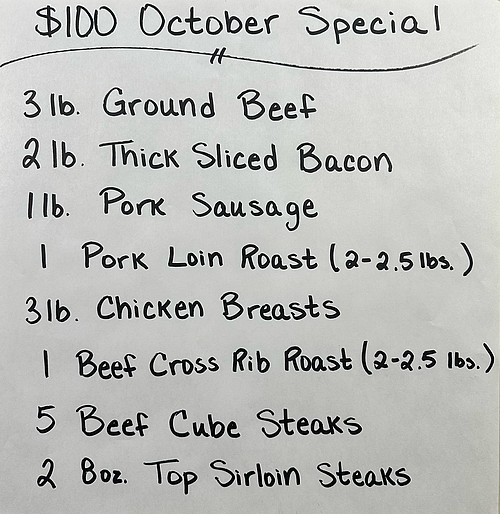 $100 October Special
3 lb. Ground Beef
2 lb. Thick Sliced Bacon
1 lb. Pork Sausage
1 Pork Loin Roast (2-2.5 lbs.)
3 lb. Chicken Breasts
1 Beef Cross Rib Roast (2-2.5 lbs.)
5 Beef Cube Steaks
2 8oz. Top Sirloin Steaks